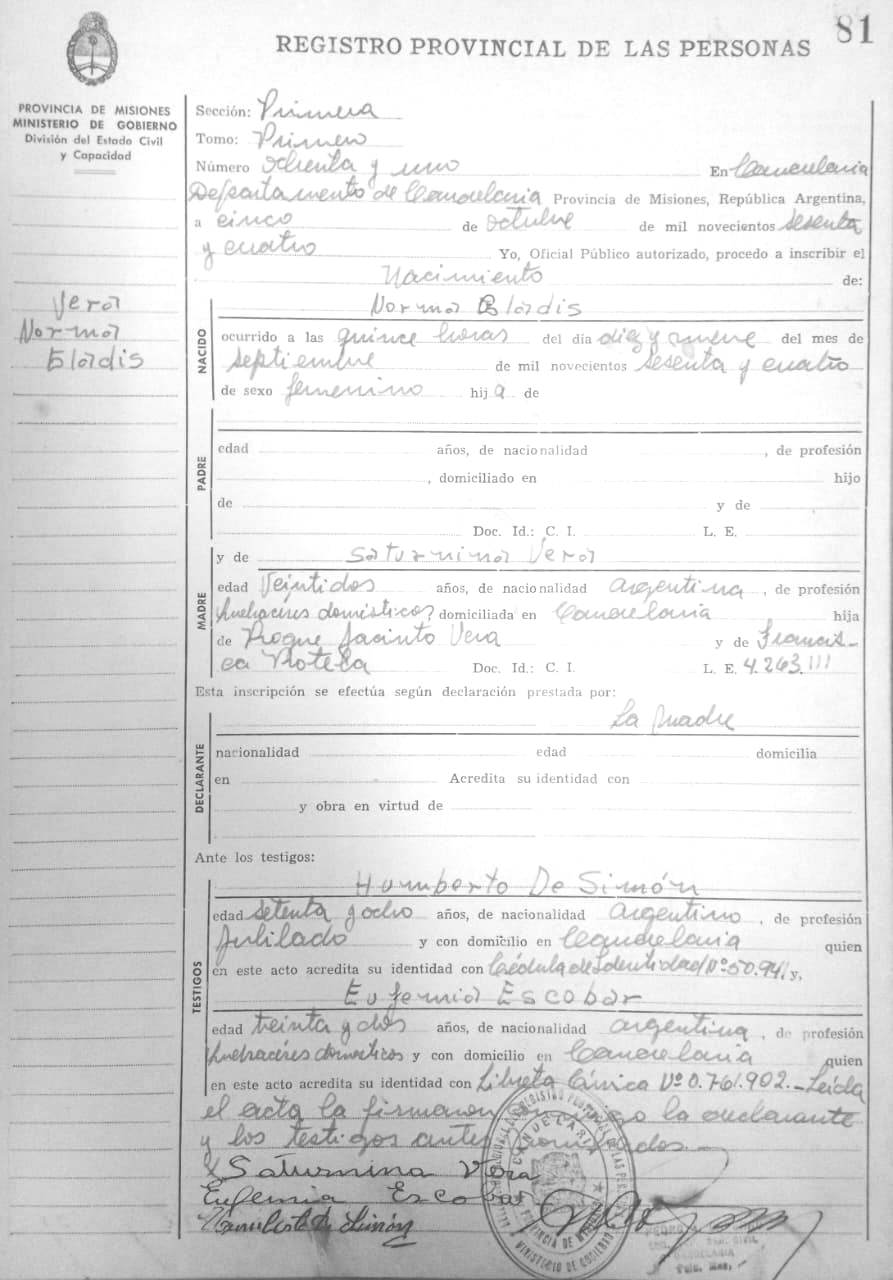 81
REGISTRO PROVINCIAL DE LAS PERSONAS
PROVINCIA DE MISIONES
MINISTERIO DE GOBIERNO
División del Estado Civil
y Capacidad
Vera
Norma
Eladis
Sección: Primera
Tomo: Primero
Número ochenta y uno En Candelaria
Departamento de Candelaria Provincia de Misiones, República Argentina,
a cinco de octubre de mil novecientos sesenta
y cuatro Yo, Oficial Público autorizado, procedo a inscribir el
Nacimiento de:
NACIDO
Norma Eladis
ocurrido a las quince horas del día diez y nueve del mes de
septiembre de mil novecientos sesenta y cuatro
de sexo femenino hija de
PADRE
edad años, de nacionalidad , de profesión
, domiciliado en hijo
de y de
Doc. Id.: C. I. L. E.
MADRE
y de Saturnina Vera
edad Veintidos años, de nacionalidad argentina, de profesión
quehaceres domésticos, domiciliada en Candelaria hija
de Roque Jacinto Vera y de Francis-
ca Rotela Doc. Id.: C. I. L. E. 4.263.111
Esta inscripción se efectúa según declaración prestada por:
La madre
DECLARANTE
nacionalidad edad domicilia
en Acredita su identidad con
y obra en virtud de
Ante los testigos:
TESTIGOS
Humberto De Simón
edad setenta y ocho años, de nacionalidad argentino, de profesión
Jubilado y con domicilio en Candelaria quien
en este acto acredita su identidad con Cédula de Identidad Nº 50.941 y,
Eufemia Escobar
edad treinta y dos años, de nacionalidad argentina, de profesión
quehaceres domesticos y con domicilio en Candelaria quien
en este acto acredita su identidad con Libreta Cívica Nº 0.761.902.- Leída
el acta la firmaron conmigo la declarante
y los testigos antes nombrados.-
Saturnina Vera
Eufemia Escobar
Humberto De Simón
CANDELARIA
PROVINCIA DE MISIONES
MINISTERIO DE GOBIERNO